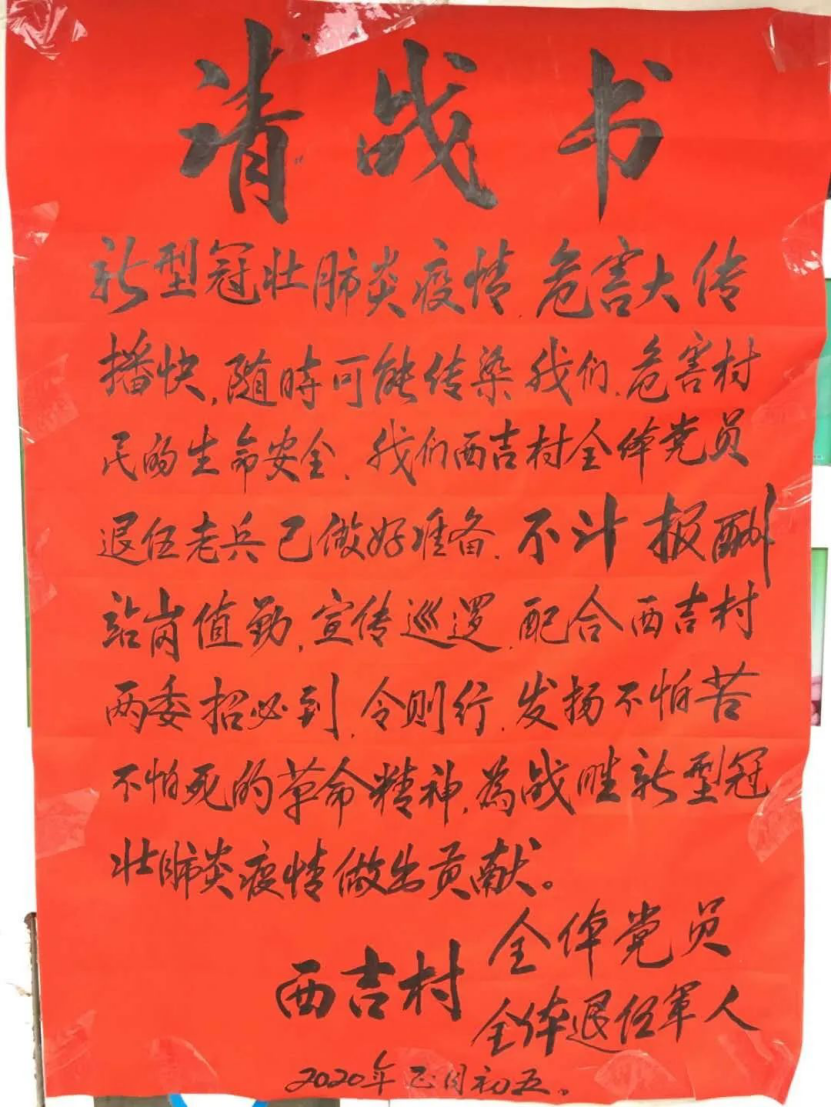 请战书
新型冠壮肺炎疫情,危害大传
播快,随时可能传染我们,危害村
民的生命安全,我们西吉村全体党员
退伍老兵已做好准备,不计报酬
站岗值勤,宣传巡逻,配合西吉村
两委招必到,令则行,发扬不怕苦
不怕死的革命精神,為战胜新型冠
壮肺炎疫情做出贡献。
西吉村 全体党员
全体退伍軍人
2020年正月初五。